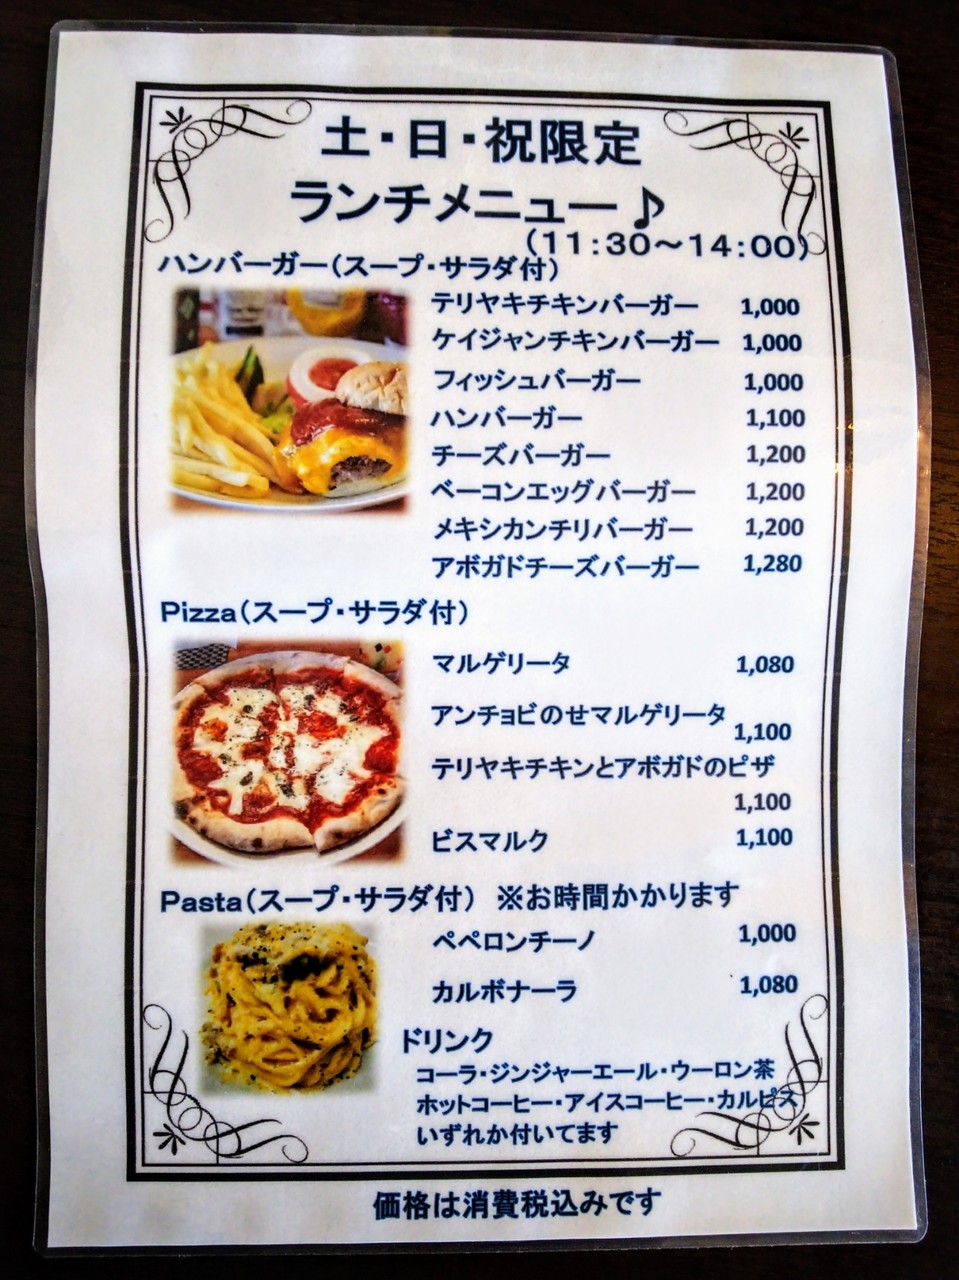 土・日・祝限定
ランチメニュー♪
（11：30～14：00）
ハンバーガー（スープ・サラダ付）
テリヤキチキンバーガー 1,000
ケイジャンチキンバーガー 1,000
フィッシュバーガー 1,000
ハンバーガー 1,100
チーズバーガー 1,200
ベーコンエッグバーガー 1,200
メキシカンチリバーガー 1,200
アボガドチーズバーガー 1,280
Pizza（スープ・サラダ付）
マルゲリータ 1,080
アンチョビのせマルゲリータ
1,100
テリヤキチキンとアボガドのピザ
1,100
ビスマルク 1,100
Pasta（スープ・サラダ付） ※お時間かかります
ペペロンチーノ 1,000
カルボナーラ 1,080
ドリンク
コーラ・ジンジャーエール・ウーロン茶
ホットコーヒー・アイスコーヒー・カルピス
いずれか付いてます
価格は消費税込みです